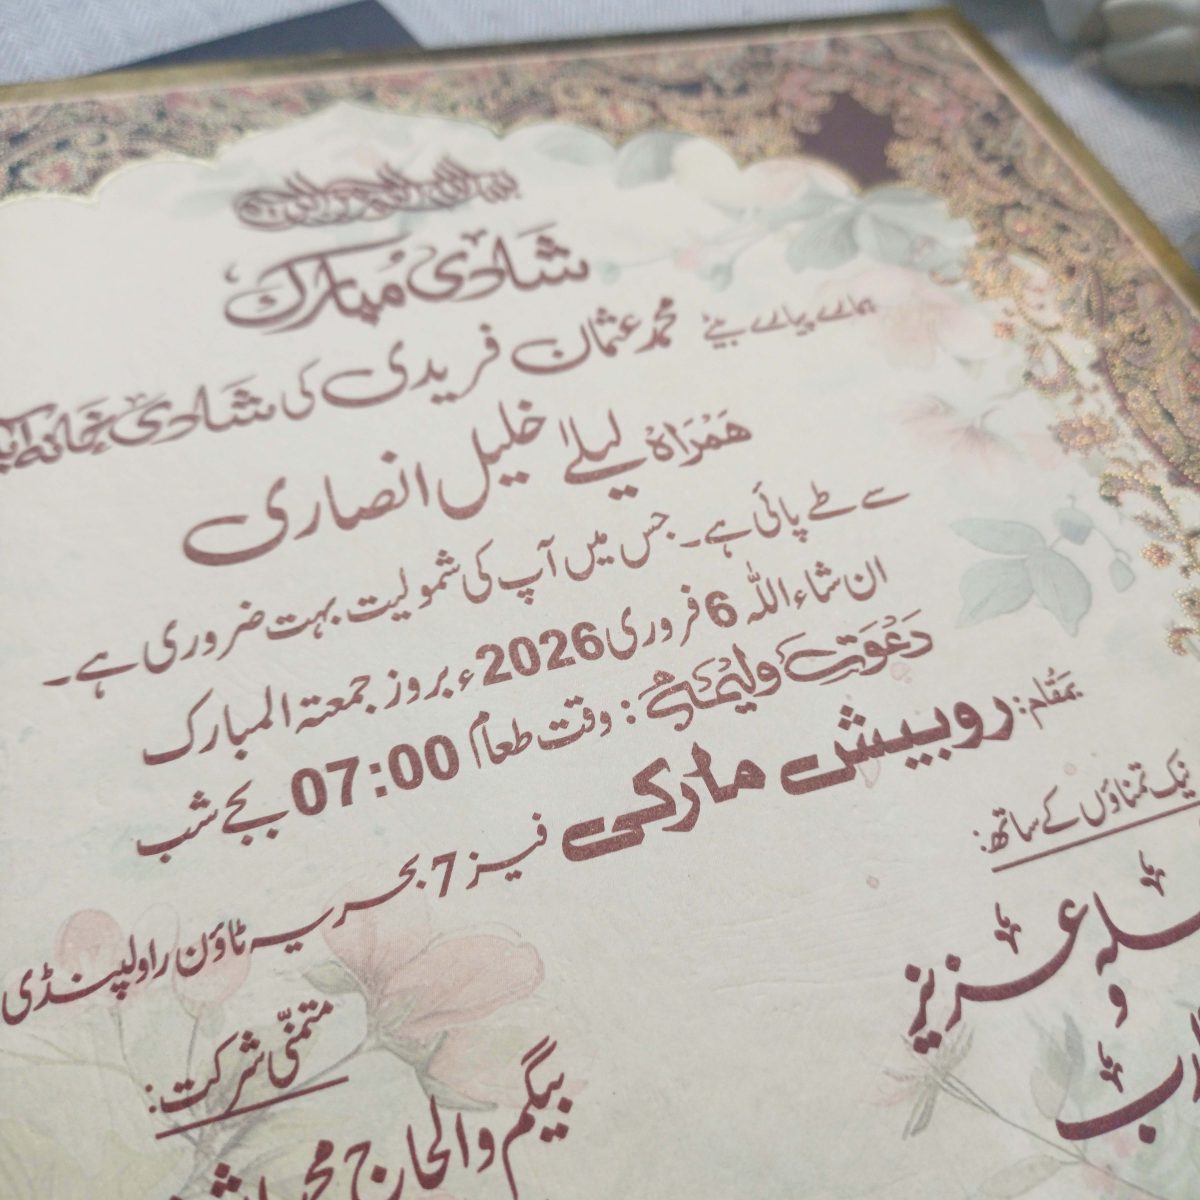 بسم اللہ الرحمن الرحیم
شادی مبارک
ہمارے پیارے بیٹے محمد عثمان فریدی کی شادی خانہ
ہمراہ لیلیٰ خلیل انصاری
سے طے پائی ہے۔ جس میں آپ کی شمولیت بہت ضروری ہے۔
ان شاء اللہ 6 فروری 2026ء بروز جمعتہ المبارک
دعوت ولیمہ: وقت طعام 07:00 بجے شب
بمقام: روبیش مارکی فیز 7 بحریہ ٹاؤن راولپنڈی
نیک تمناؤں کے ساتھ:
و عزیز
متمنّی شرکت:
بیگم والحاج محمد